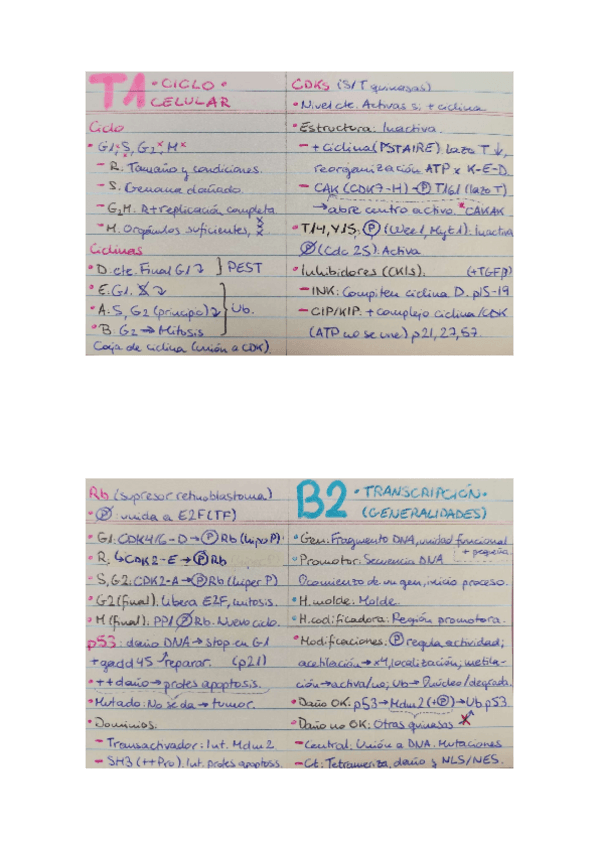 T1 • CICLO •
CELULAR
Ciclo
• G1, S, G2, M
– R. Tamaño y condiciones.
– S. Genoma dañado.
– G2M. R + replicación completa
– M. Orgánulos suficientes,
Ciclinas
• D. cte. Final G1 ↓ } PEST
• E. G1. S ↓
• A. S, G2 (principo) ↓ } Ub.
• B. G2 → Mitosis
Caja de ciclina (unión a CDK).
CDKs (S/T quinasas)
• Nivel cte. Activas si + ciclina
• Estructura: Inactiva.
– + Ciclina (PSTAIRE). lazo T ↓,
reorganización ATP x K-E-D.
– CAK (CDK7-H) → Ⓟ T161 (lazo T)
→ abre centro activo. * CAKAK
• T14, Y15: Ⓟ (Wee1, Myt1): Inactiva
Ⓟ (Cdc 25): Activa
• Inhibidores (CKIs). (+TGFβ)
– INK: Compiten ciclina D. p15-19
– CIP/KIP. + complejo ciclina/CDK
(ATP no se une) p21, 27, 57.
Rb (supresor retinoblastoma)
• Ⓟ: unida a E2F (TF)
• G1: CDK4/6-D → Ⓟ Rb (hipo P)
• R: ↳ CDK2-E → Ⓟ Rb
• S, G2: CDK2-A → Ⓟ Rb (hiper P)
• G2 (final). libera E2F, mitosis.
• M (final). PP1 Ⓟ Rb. Nuevo ciclo.
p53: daño DNA → stop en G1
+ gadd45 → reparar. (p21)
• ++ daño → protes apoptosis.
• Mutado: No se da → tumor.
• Dominios:
– Transactivador: Int. Mdm2.
– SH3 (++Pro). Int. protes apoptosis.
B2 • TRANSCRIPCIÓN •
(GENERALIDADES)
• Gen: Fragmento DNA, unidad funcional
+ pequeña
• Promotor: Secuencia DNA
de un gen, inicio proceso.
• H. molde: Molde.
• H. codificadora: Región promotora.
• Modificaciones. Ⓟ regula actividad;
acetilación → x4, localización, metila-
ción → activa/no; Ub → núcleo/degrada.
• Daño OK: p53 → Mdm2 (+Ⓟ) → Ub p53
• Daño no OK: Otras quinasas
– Central. Unión a DNA. Mutaciones
– Ct: Tetrameriza, daño y NLS/NES.